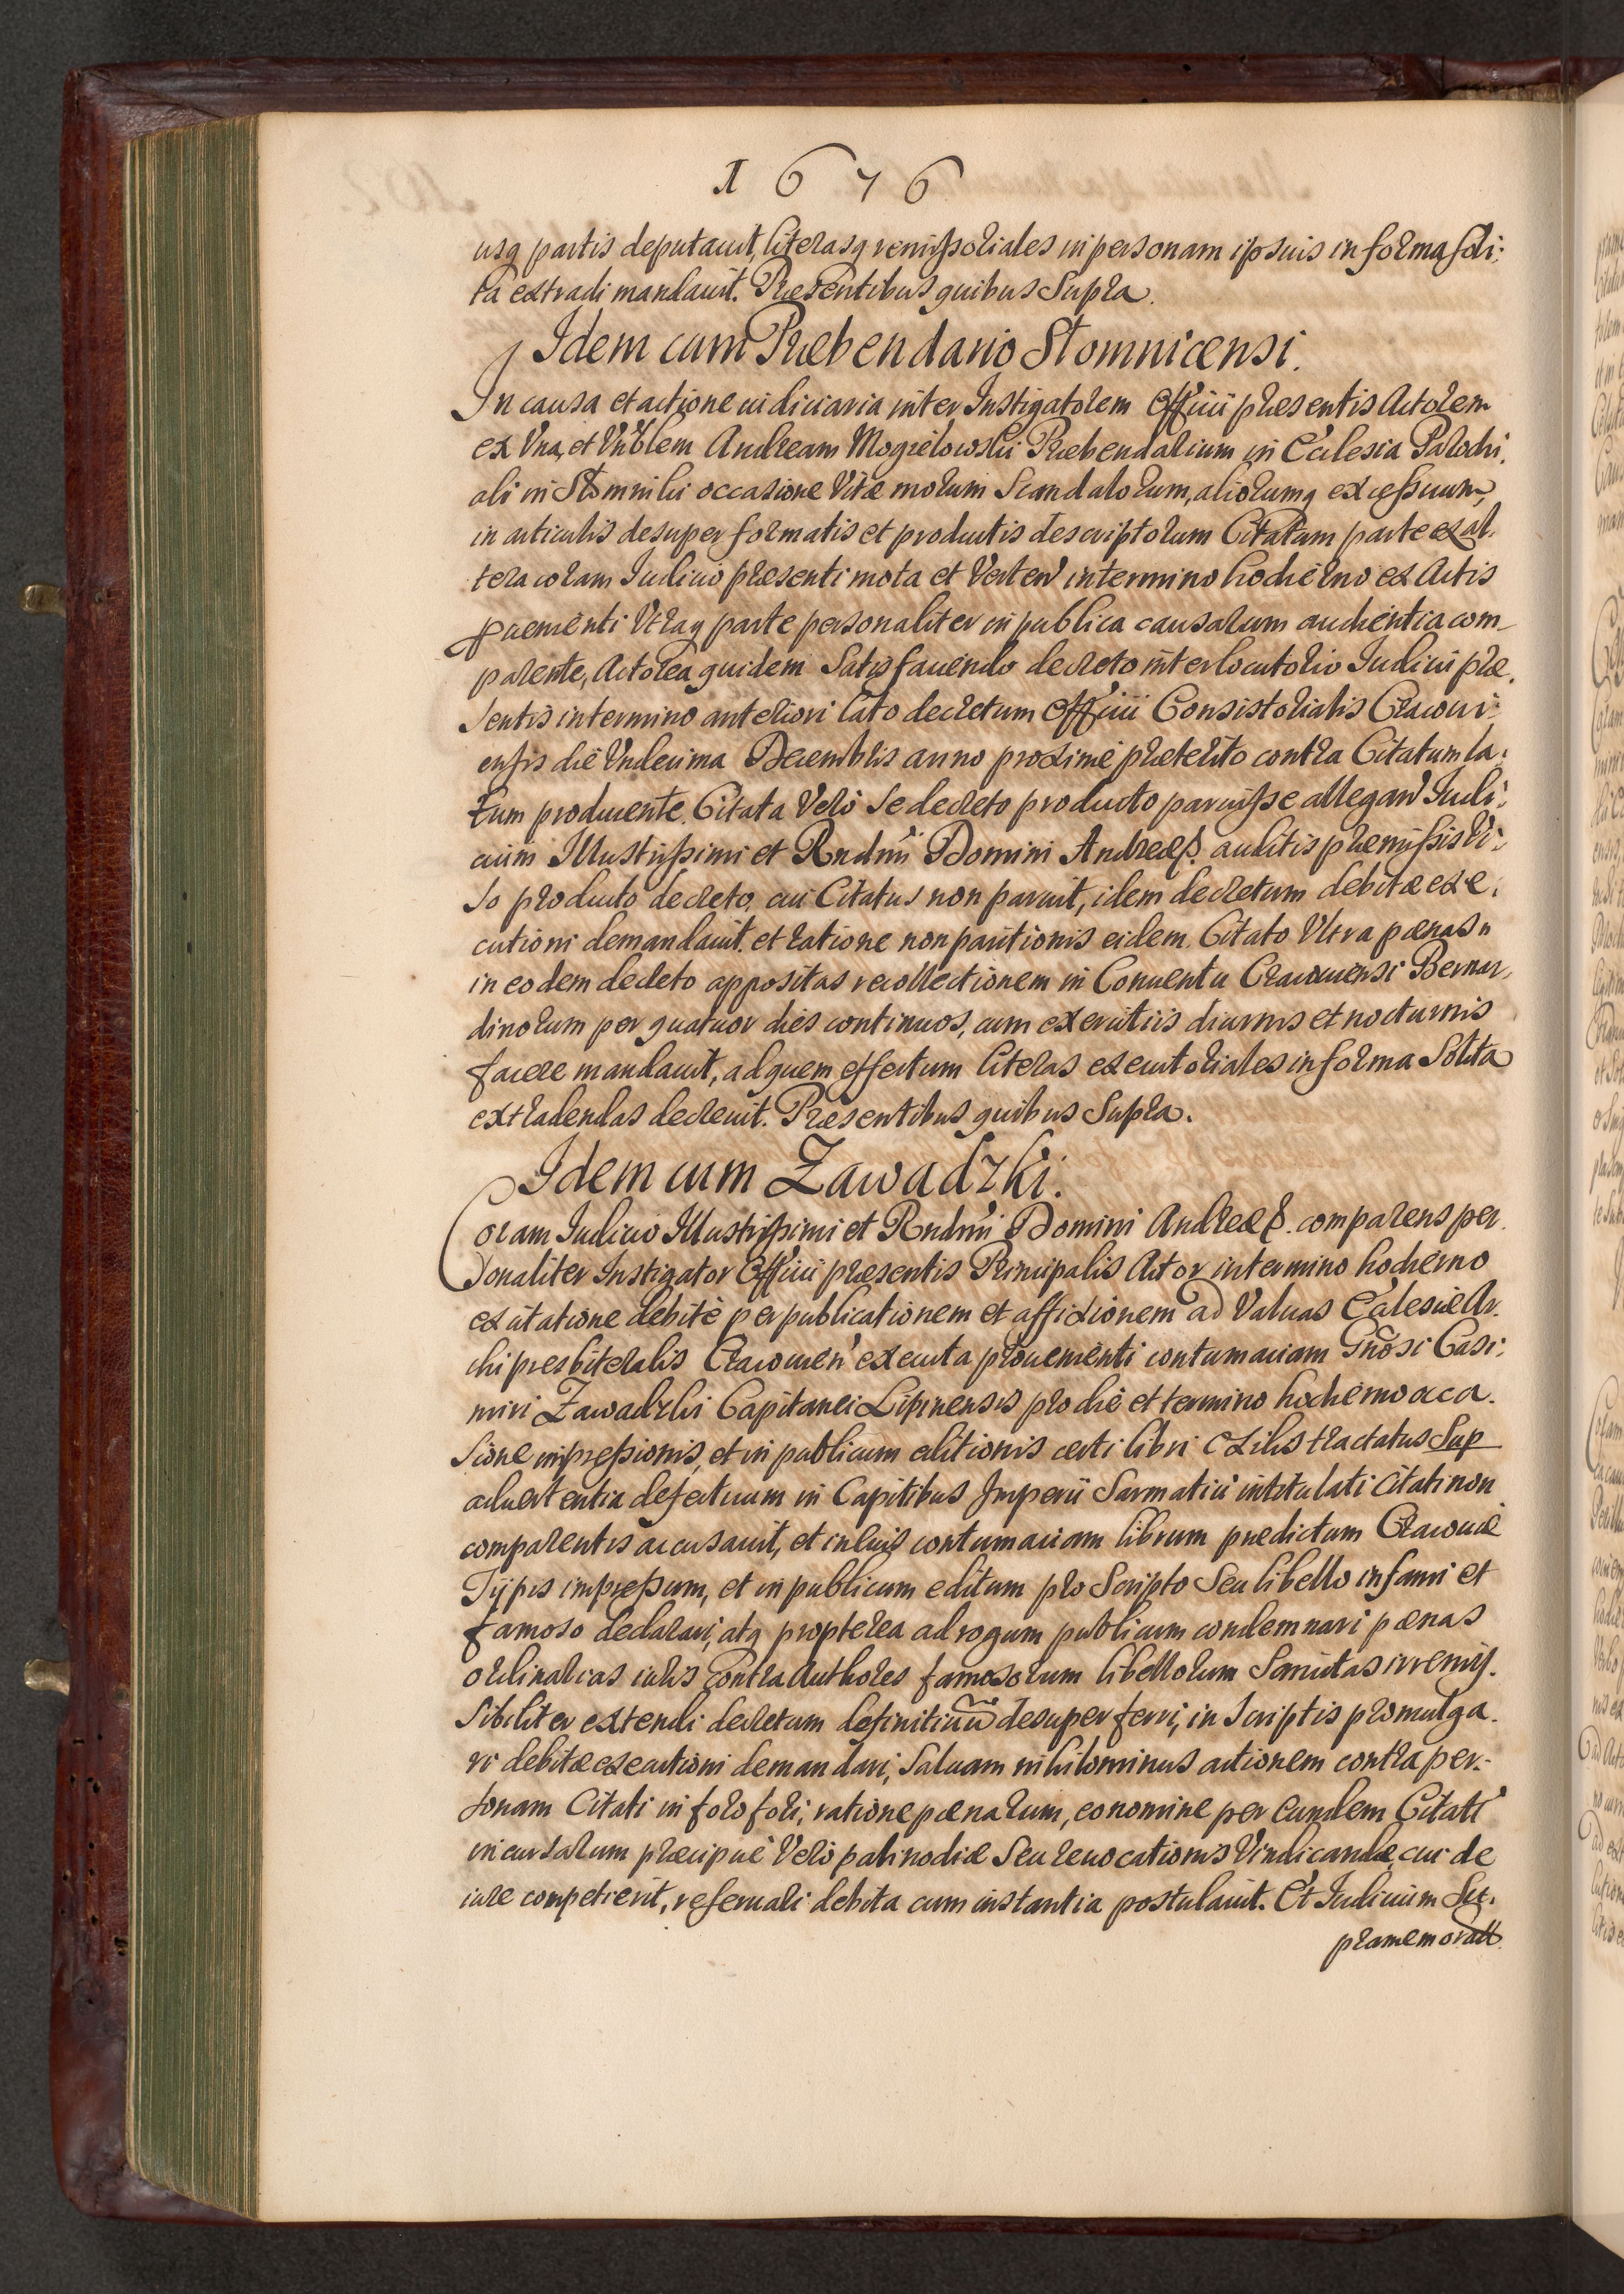 1676
usq partis deputauit, literasq remissoriales in personam ipsius in forma soli:
ta extradi mandauit. Præsentibus quibus Supra.
Idem cum Præbendario Stomnicensi.
In causa et actione iudiciaria inter Instigatorem Officii præsentis Actorem
ex Vna, et Vnblem Andream Mogielowski Præbendarium in Ecclesia Parochi.
ali in Stomniki occasione Vitæ morum Scandalorum, aliorumq excessuum,
in articulis desuper formatis et productis descriptorum Citatum parte ex al.
tera coram Iudicio præsenti mota et Verten̄ in termino hodierno ex Actis
ꝓuenienti Vtraq parte personaliter in publica causarum audientia com-
parente, Actorea quidem Satisfaciendo decreto interlocutorio Iudicii præ.
sentis in termino anteriori lato decretum Officii Consistorialis Cracoui:
ensis die Vndecima Decembris anno proxime præterito contra Citatum la:
tum producente. Citata Verò Se decreto producto paruisse allegan̄ Iudi:
cium Illustrissimi et Rndmi Domini Andreæ &. auditis præmissis Vi:
so producto decreto, cui Citatus non paruit, idem decretum debitæ exe:
cutioni demandauit. et ratione non paritionis eidem Citato Vltra pænas
in eodem decreto appositas recollectionem in Conuentu Cracouiensi Bernar,
dinorum per quatuor dies continuos, cum exercitiis diurnis et nocturnis
facere mandauit, ad quem effectum literas executoriales in forma Solita
extradendas decreuit. Præsentibus quibus Supra.
Idem cum Zawadzki.
Coram Iudicio Illustrissimi et Rndmi Domini Andreæ &. comparens per.
sonaliter Instigator Officii præsentis Principalis Actor in termino hodierno
ex citatione debitè per publicationem et affixionem ad Valuas Ecclesiæ Ar.
chipresbiteralis Cracouien̄ executa prouenienti contumaciam Gnosi Casi:
miri Zawadzki Capitanei Lipinensis pro die et termino hodierno occa.
sione impressionis, et in publicum editionis certi libri Exilis tractatus Sup
aduertentia defectuum in Capitibus Imperii Sarmatici intitulati Citati non
comparentis accusauit, et in eius contumaciam librum prædictum Cracouiæ
Typis impressum, et in publicum editum pro Scripto Seu libello infami et
famoso declarari, atq propterea ad rogum publicum condemnari pænas
ordinarias iuris contra Authores famosorum libellorum Sancitas irremis.
sibiliter extendi decretum definitiuū desuper ferri, in Scriptis promulga.
ri debitæ executioni demandari, Saluam nihilominus actionem contra per.
sonam Citati in foro fori, ratione pænarum, eo nomine per eundem Citati
incursarum præcipuè Verò palinodiæ Seu reuocationis Vindicandæ, cui de
iure competierit, reseruari debita cum instantia postulauit. Et Iudicium Su.
pramemorati